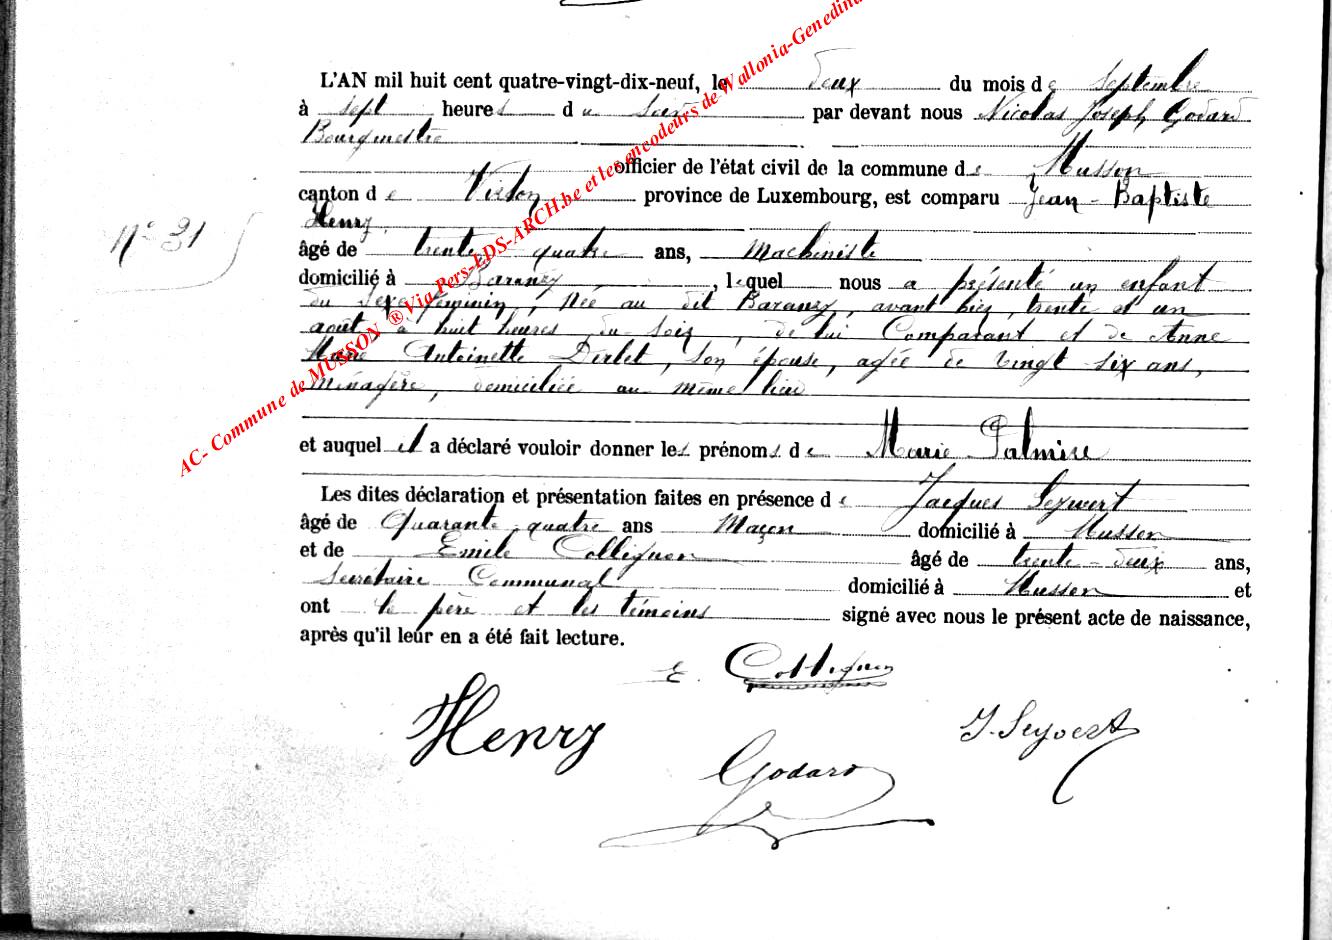 L'AN mil huit cent quatre-vingt-dix-neuf, le deux du mois de Septembre
à sept heures du soir par devant nous Nicolas Joseph Godard
Bourgmestre
officier de l'état civil de la commune de Musson
canton de Virton province de Luxembourg, est comparu Jean-Baptiste
Henry
âgé de trente quatre ans, Machiniste
domicilié à Baranzy, lequel nous a présenté un enfant
du sexe féminin, née au dit Baranzy, avant hier, trente et un
août à huit heures du soir, de lui Comparant et de Anne
Marie Antoinette Derlet, son épouse, agée de vingt six ans,
Ménagère, domiciliée au même lieu
et auquel il a déclaré vouloir donner les prénoms de Marie Palmire
Les dites déclaration et présentation faites en présence de Jacques Seywert
âgé de Quarante quatre ans Maçon domicilié à Musson
et de Emile Collignon âgé de trente-deux ans,
Secrétaire Communal domicilié à Musson et
ont le père et les témoins signé avec nous le présent acte de naissance,
après qu'il leur en a été fait lecture.
E. Collignon
Henry
J. Seywert
Godard
N° 31
AC- Commune de MUSSON ® Via Pers-EDS-ARCH.be et les encodeurs de Wallonia-Genedina